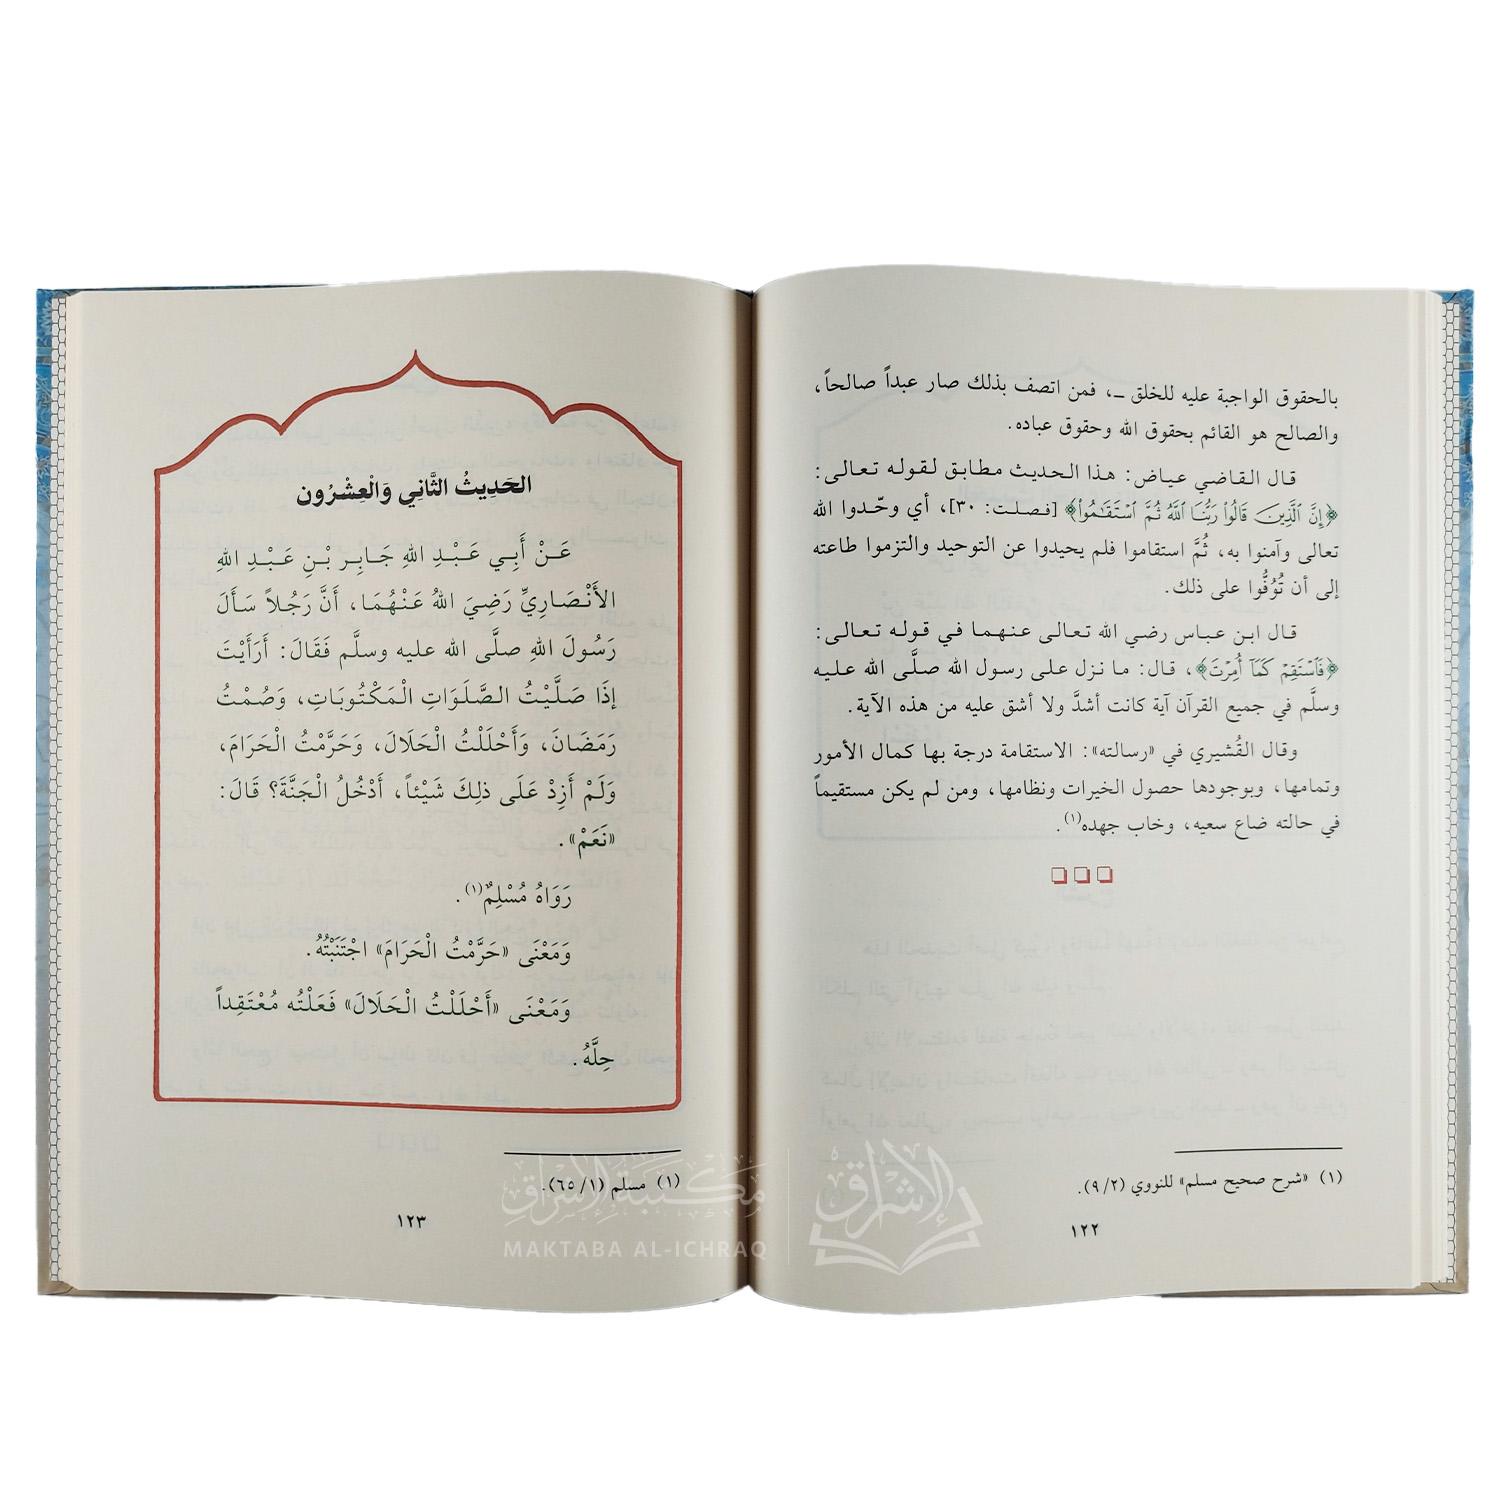 بالحقوق الواجبة عليه للخلق ـ، فمن اتصف بذلك صار عبداً صالحاً،
والصالح هو القائم بحقوق الله وحقوق عباده.
قال القاضي عياض: هذا الحديث مطابق لقوله تعالى:
﴿إِنَّ ٱلَّذِينَ قَالُوا۟ رَبُّنَا ٱللَّهُ ثُمَّ ٱسْتَقَٰمُوا۟﴾ [فصلت: ٣٠]، أي وحّدوا الله
تعالى وآمنوا به، ثُمَّ استقاموا فلم يحيدوا عن التوحيد والتزموا طاعته
إلى أن تُوُفُّوا على ذلك.
قال ابن عباس رضي الله تعالى عنهما في قوله تعالى:
﴿فَٱسْتَقِمْ كَمَآ أُمِرْتَ﴾، قال: ما نزل على رسول الله صلَّى الله عليه
وسلَّم في جميع القرآن آية كانت أشدَّ ولا أشق عليه من هذه الآية.
وقال القُشيري في «رسالته»: الاستقامة درجة بها كمال الأمور
وتمامها، وبوجودها حصول الخيرات ونظامها، ومن لم يكن مستقيماً
في حالته ضاع سعيه، وخاب جهده(١).
(١) «شرح صحيح مسلم» للنووي (٩/٢).
١٢٢
الحَدِيثُ الثَّانِي وَالْعِشْرُون
عَنْ أَبِي عَبْدِ اللهِ جَابِرِ بْنِ عَبْدِ اللهِ
الأَنْصَارِيِّ رَضِيَ اللهُ عَنْهُمَا، أَنَّ رَجُلاً سَأَلَ
رَسُولَ اللهِ صلَّى الله عليه وسلَّم فَقَالَ: أَرَأَيْتَ
إِذَا صَلَّيْتُ الصَّلَوَاتِ الْمَكْتُوبَاتِ، وَصُمْتُ
رَمَضَانَ، وَأَحْلَلْتُ الْحَلَالَ، وَحَرَّمْتُ الْحَرَامَ،
وَلَمْ أَزِدْ عَلَى ذلِكَ شَيْئاً، أَدْخُلُ الْجَنَّةَ؟ قَالَ:
«نَعَمْ».
رَوَاهُ مُسْلِمٌ(١).
وَمَعْنَى «حَرَّمْتُ الْحَرَامَ» اجْتَنَبْتُهُ.
وَمَعْنَى «أَحْلَلْتُ الْحَلَالَ» فَعَلْتُه مُعْتَقِداً
حِلَّهُ.
(١) مسلم (٦٥/١).
١٢٣
الإشراق
مكتبة الإشراق
MAKTABA AL-ICHRAQ